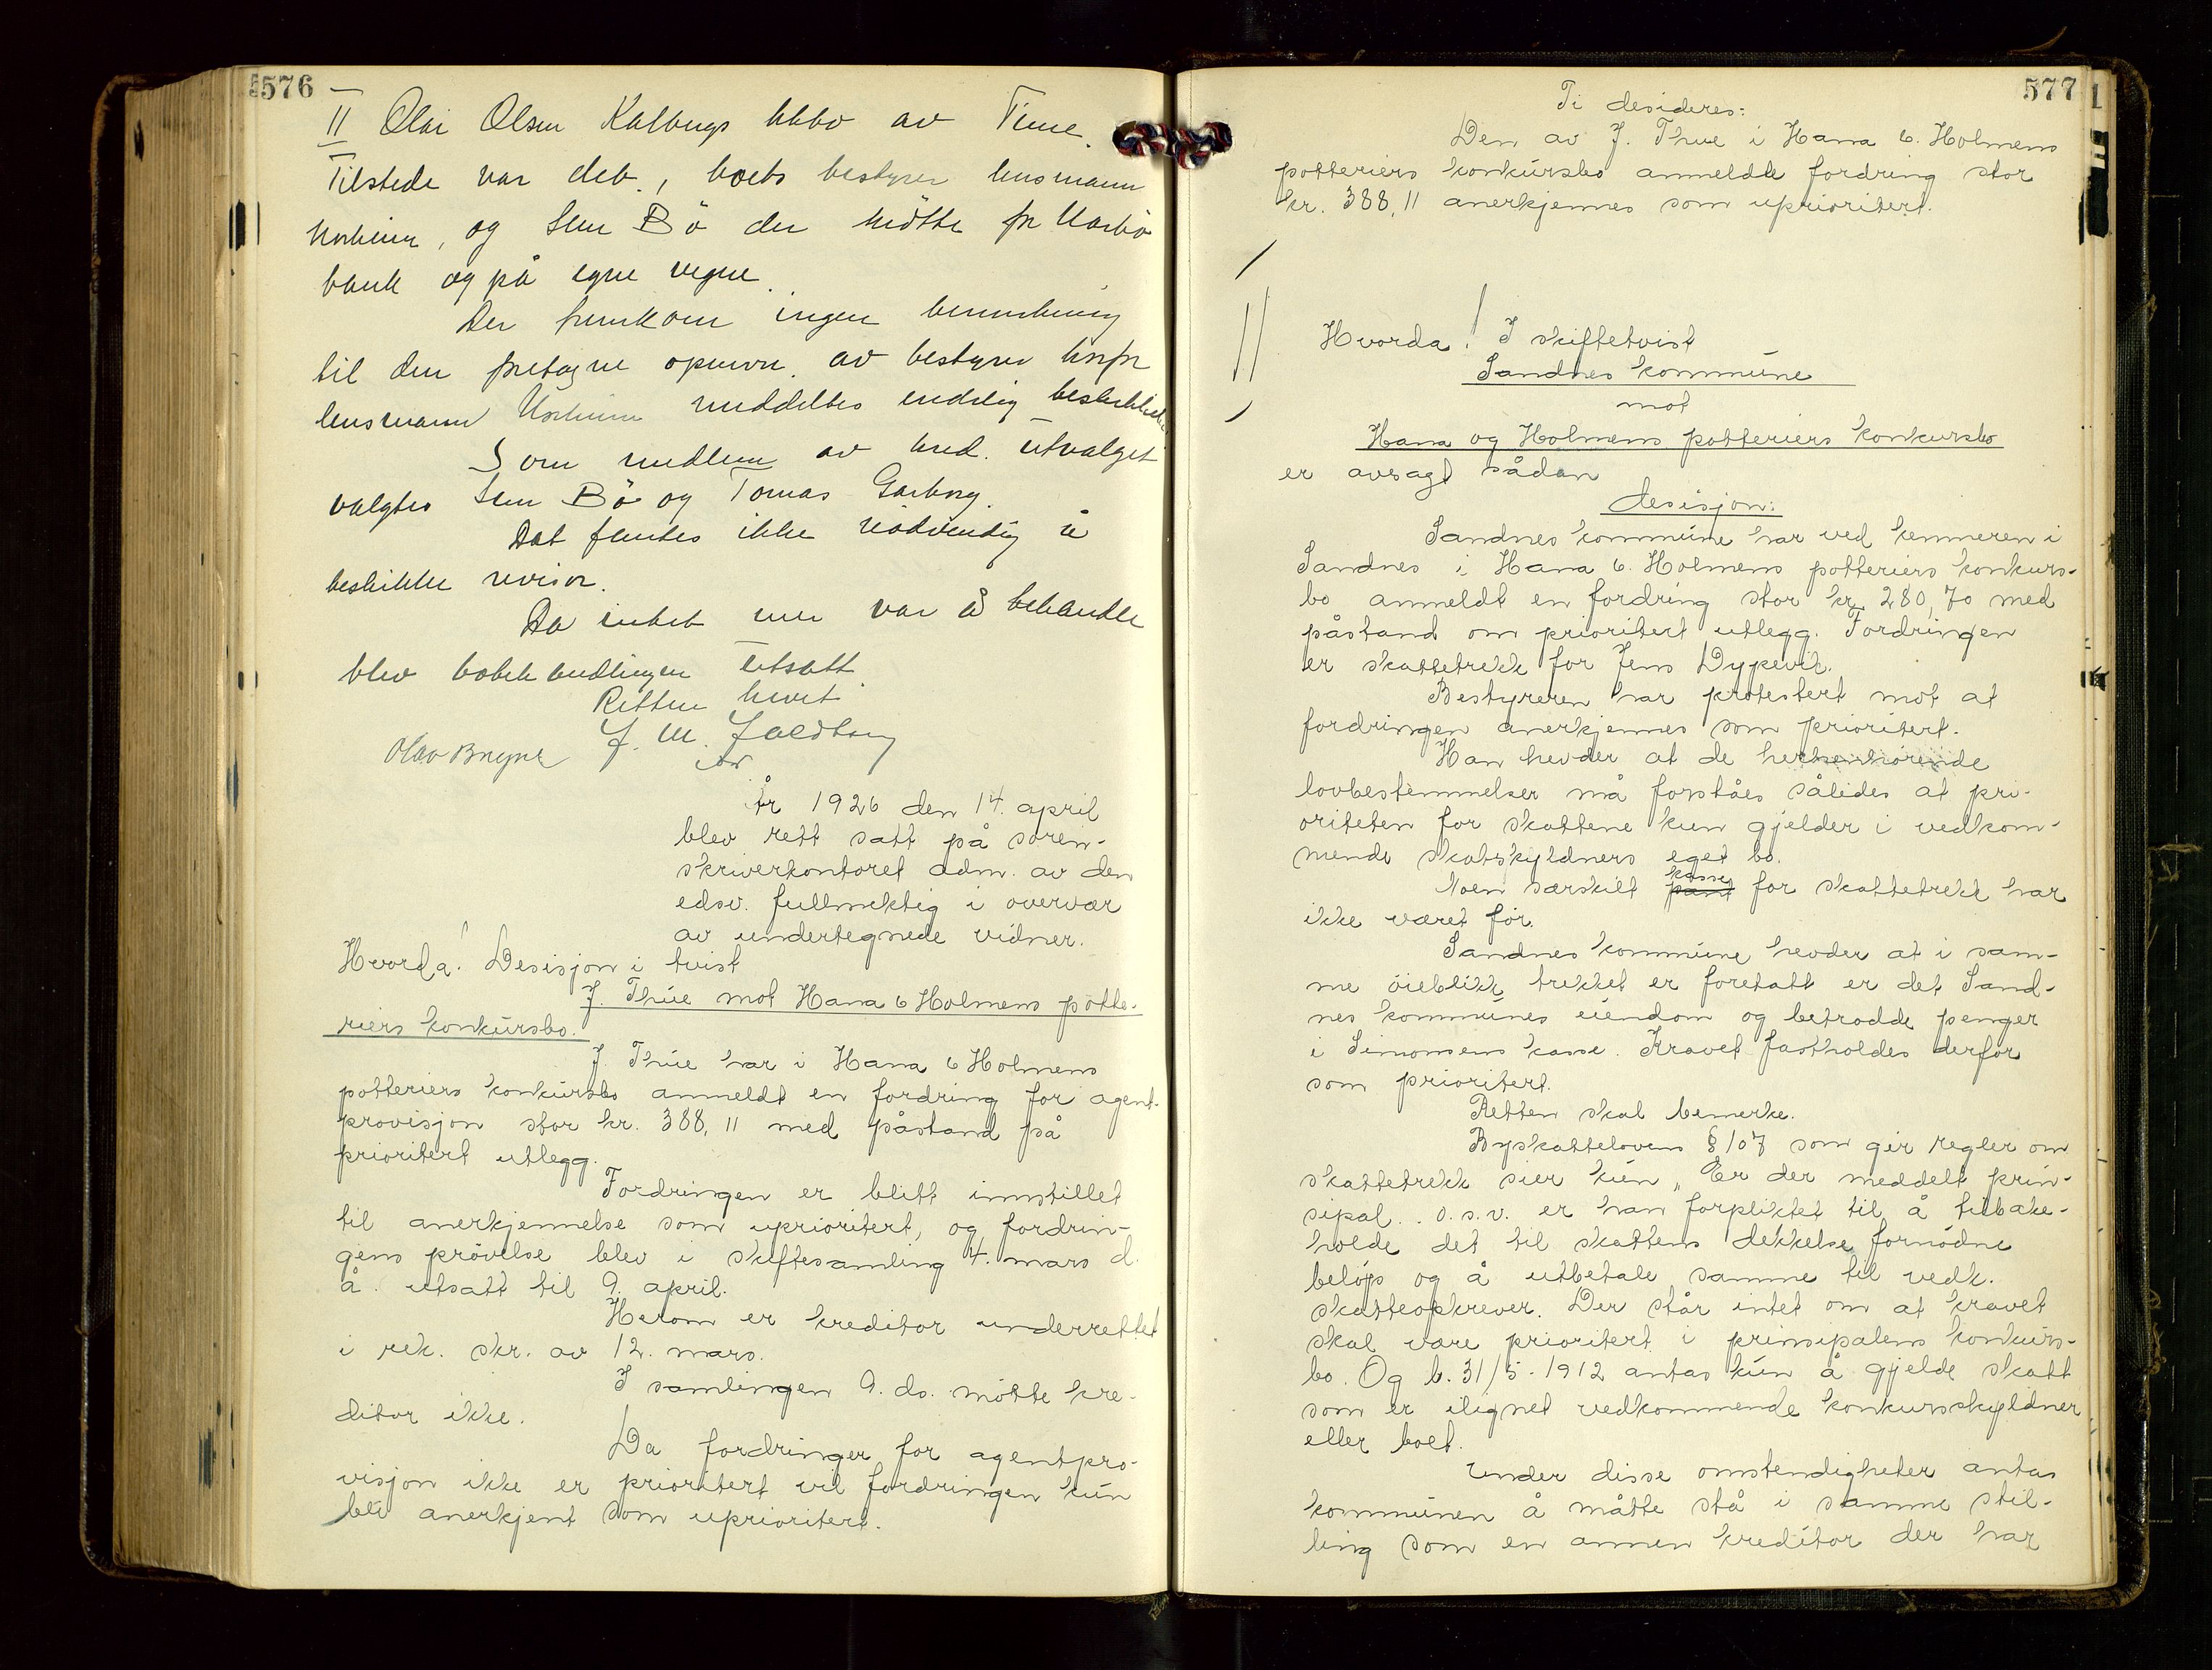 576
II Olai Olsen Kalbergs kkbo av Time.
Tilstede var deb., boets bestyrer lensmann
og Bö der mötte for
bank og på egne vegne.
Der fremkom ingen bemerkning
til den foretagne opnevn. av bestyrer hvorfor
lensmann meddeltes endelig
Som medlem av kred. utvalget
valgtes Bö og Tomas Garborg.
Det fantes ikke nödvendig å
beskikke revisor.
Da intet mer var å behandle
blev bobehandlingen utsatt.
Retten hevet
Olav Bryne
År 1926 den 14. april
blev rett satt på soren-
skriverkontoret adm. av den
edsv. fullmektig i overvær
av undertegnede vidner.
Hvorda! Desisjon i tvist
J. Thue mot Hana & Holmens potte-
riers konkursbo.
J. Thue har i Hana & Holmens
potteriers konkursbo anmeldt en fordring for agent-
provisjon stor kr. 388,11 med påstand på
prioritert utlegg.
Fordringen er blitt innstillet
til anerkjennelse som uprioritert, og fordrin-
gens prövelse blev i skiftesamling 4. mars d.
å. utsatt til 9. april.
Herom er kreditor underrettet
i rek. skr. av 12. mars.
I samlingen 9. ds. mötte kre-
ditor ikke.
Da fordringer for agentpro-
visjon ikke er prioritert vil fordringen kun
bli anerkjent som uprioritert.
577
Ti desideres:
Den av J. Thue i Hana & Holmens
potteriers konkursbo anmeldte fordring stor
kr. 388,11 anerkjennes som uprioritert.
Hvorda! I skiftetvist
Sandnes kommune
mot
Hana og Holmens potteriers konkursbo
er avsagt sådan
desisjon:
Sandnes kommune har ved kemneren i
Sandnes i Hana & Holmens potteriers konkurs-
bo anmeldt en fordring stor kr. 280,70 med
påstand om prioritert utlegg. Fordringen
er skattetrekk for Jens Dypevik.
Bestyreren har protestert mot at
fordringen anerkjennes som prioritert.
Han hevder at de herhenhörende
lovbestemmelser må forståes således at pri-
oriteten for skattene kun gjelder i vedkom-
mende skatskyldners eget bo.
Noen særskilt pant kasse for skattetrekk har
ikke været för.
Sandnes kommune hevder at i sam-
me öieblikk trekket er foretatt er det Sand-
nes kommunes eiendom og betrodde penger
i Simonsens kasse. Kravet fastholdes derfor
som prioritert.
Retten skal bemerke.
Byskattelovens § 107 som gir regler om
skattetrekk sier kun „Er der meddelt prin-
sipal.. o.s.v. er han forpliktet til å tilbake-
holde det til skattens dekkelse fornödne
belöp og å utbetale samme til vedk.
skatteopkrever. Der står intet om at kravet
skal være prioritert i prinsipalens konkurs-
bo. Og l. 31/5-1912 antas kun å gjelde skatt
som er ilignet vedkommende konkursskyldner
eller boet.
Under disse omstendigheter antas
kommunen å måtte stå i samme stil-
ling som en annen kreditor der har